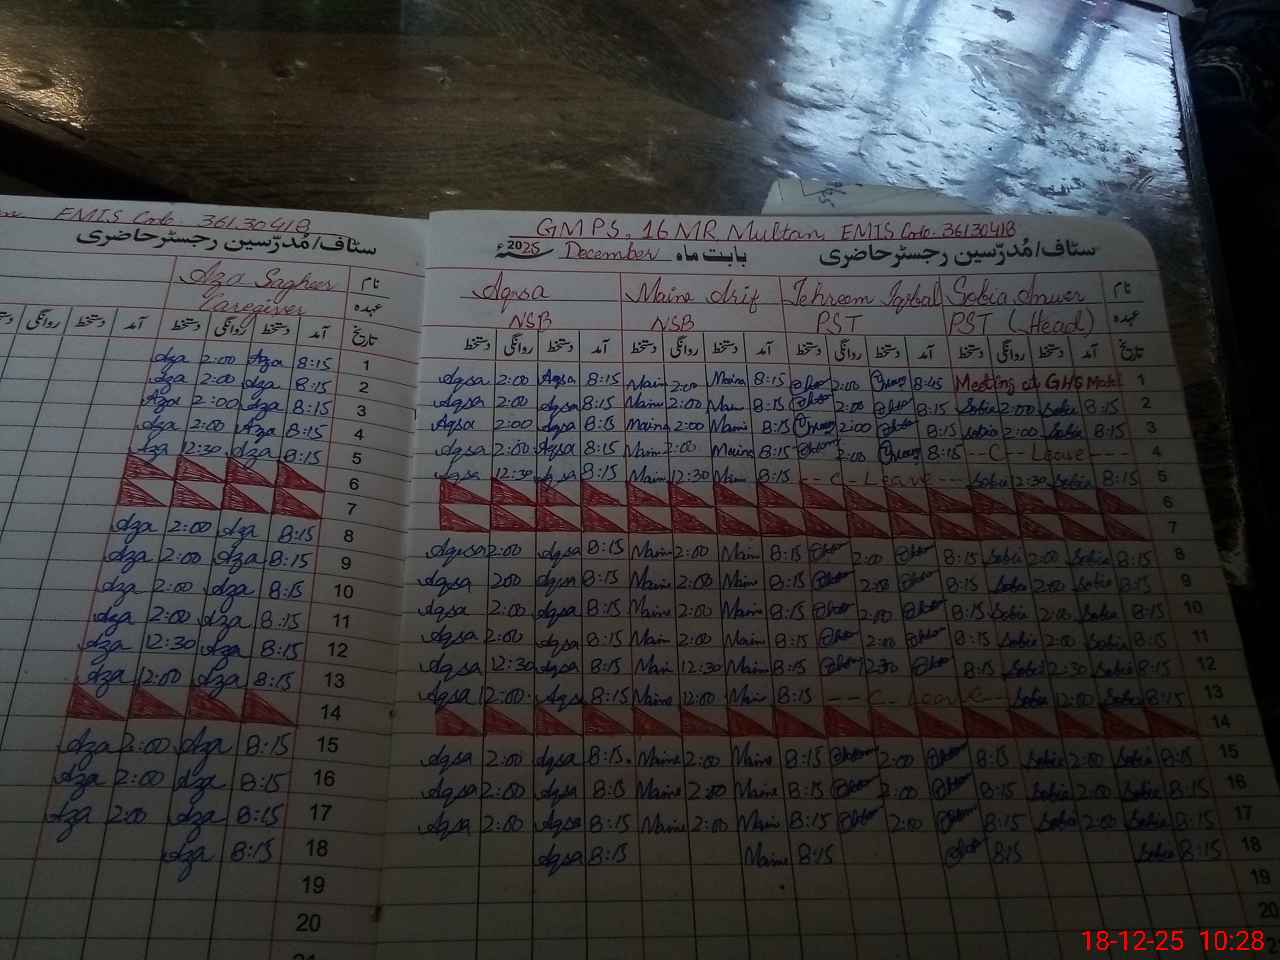 EMIS Code: 36130418
سٹاف/مُدرّسین رجسٹر حاضری
نام Aza Sagheer
عہدہ Caregiver
تاریخ آمد دستخط روانگی دستخط آمد دستخط روانگی
1 8:15 Aza 2:00 Aza
2 8:15 Aza 2:00 Aza
3 8:15 Aza 2:00 Aza
4 8:15 Aza 2:00 Aza
5 8:15 Aza 12:30 Aza
6
7
8 8:15 Aza 2:00 Aza
9 8:15 Aza 2:00 Aza
10 8:15 Aza 2:00 Aza
11 8:15 Aza 2:00 Aza
12 8:15 Aza 12:30 Aza
13 8:15 Aza 12:00 Aza
14
15 8:15 Aza 2:00 Aza
16 8:15 Aza 2:00 Aza
17 8:15 Aza 2:00 Aza
18 8:15 Aza
19
20
GMPS. 16 MR Multan EMIS Code: 36130418
سٹاف/مُدرّسین رجسٹر حاضری بابت ماہ December 2025
نام Sobia Anwer Tehreem Iqbal Maine Arif Aqsa
عہدہ PST (Head) PST NSB NSB
تاریخ آمد دستخط روانگی دستخط آمد دستخط روانگی دستخط آمد دستخط روانگی دستخط آمد دستخط روانگی دستخط
1 Meeting at GHS Model 8:45 2:00 8:15 Maine 2:00 Main 8:15 Aqsa 2:00 Aqsa
2 8:15 Sobia 2:00 Sobia 8:15 2:00 8:15 Main 2:00 Main 8:15 Aqsa 2:00 Aqsa
3 8:15 Sobia 2:00 Sobia 8:15 2:00 8:15 Main 2:00 Maine 8:15 Aqsa 2:00 Aqsa
4 --C--Leave--- 8:15 2:00 8:15 Maine 2:00 Main 8:15 Aqsa 2:00 Aqsa
5 8:15 Sobia 12:30 Sobia --C-Leave-- 8:15 Main 12:30 Main 8:15 Aqsa 12:30 Aqsa
6
7
8 8:15 Sobia 2:00 Sobia 8:15 2:00 8:15 Main 2:00 Main 8:15 Aqsa 2:00 Aqsa
9 8:15 Sobia 2:00 Sobia 8:15 2:00 8:15 Main 2:00 Maine 8:15 Aqsa 200 Aqsa
10 8:15 Sobia 2:00 Sobia 8:15 2:00 8:15 Main 2:00 Maine 8:15 Aqsa 2:00 Aqsa
11 8:15 Sobia 2:00 Sobia 8:15 2:00 8:15 Main 2:00 Main 8:15 Aqsa 2:00 Aqsa
12 8:15 Sobia 12:30 Sobia 8:15 12:30 8:15 Main 12:30 Main 8:15 Aqsa 12:30 Aqsa
13 8:15 Sobia 12:00 Sobia ---C-Leave- 8:15 Main 12:00 Maine 8:15 Aqsa 12:00 Aqsa
14
15 8:15 Sobia 2:00 Sobia 8:15 2:00 8:15 Maine 2:00 Maine 8:15 Aqsa 2:00 Aqsa
16 8:15 Sobia 2:00 Sobia 8:15 2:00 8:15 Maine 2:00 Maine 8:15 Aqsa 2:00 Aqsa
17 8:15 Sobia 2:00 Sobia 8:15 2:00 8:15 Main 2:00 Maine 8:15 Aqsa 2:00 Aqsa
18 8:15 Sobia 8:15 8:15 Maine 8:15 Aqsa
19
20
18-12-25 10:28